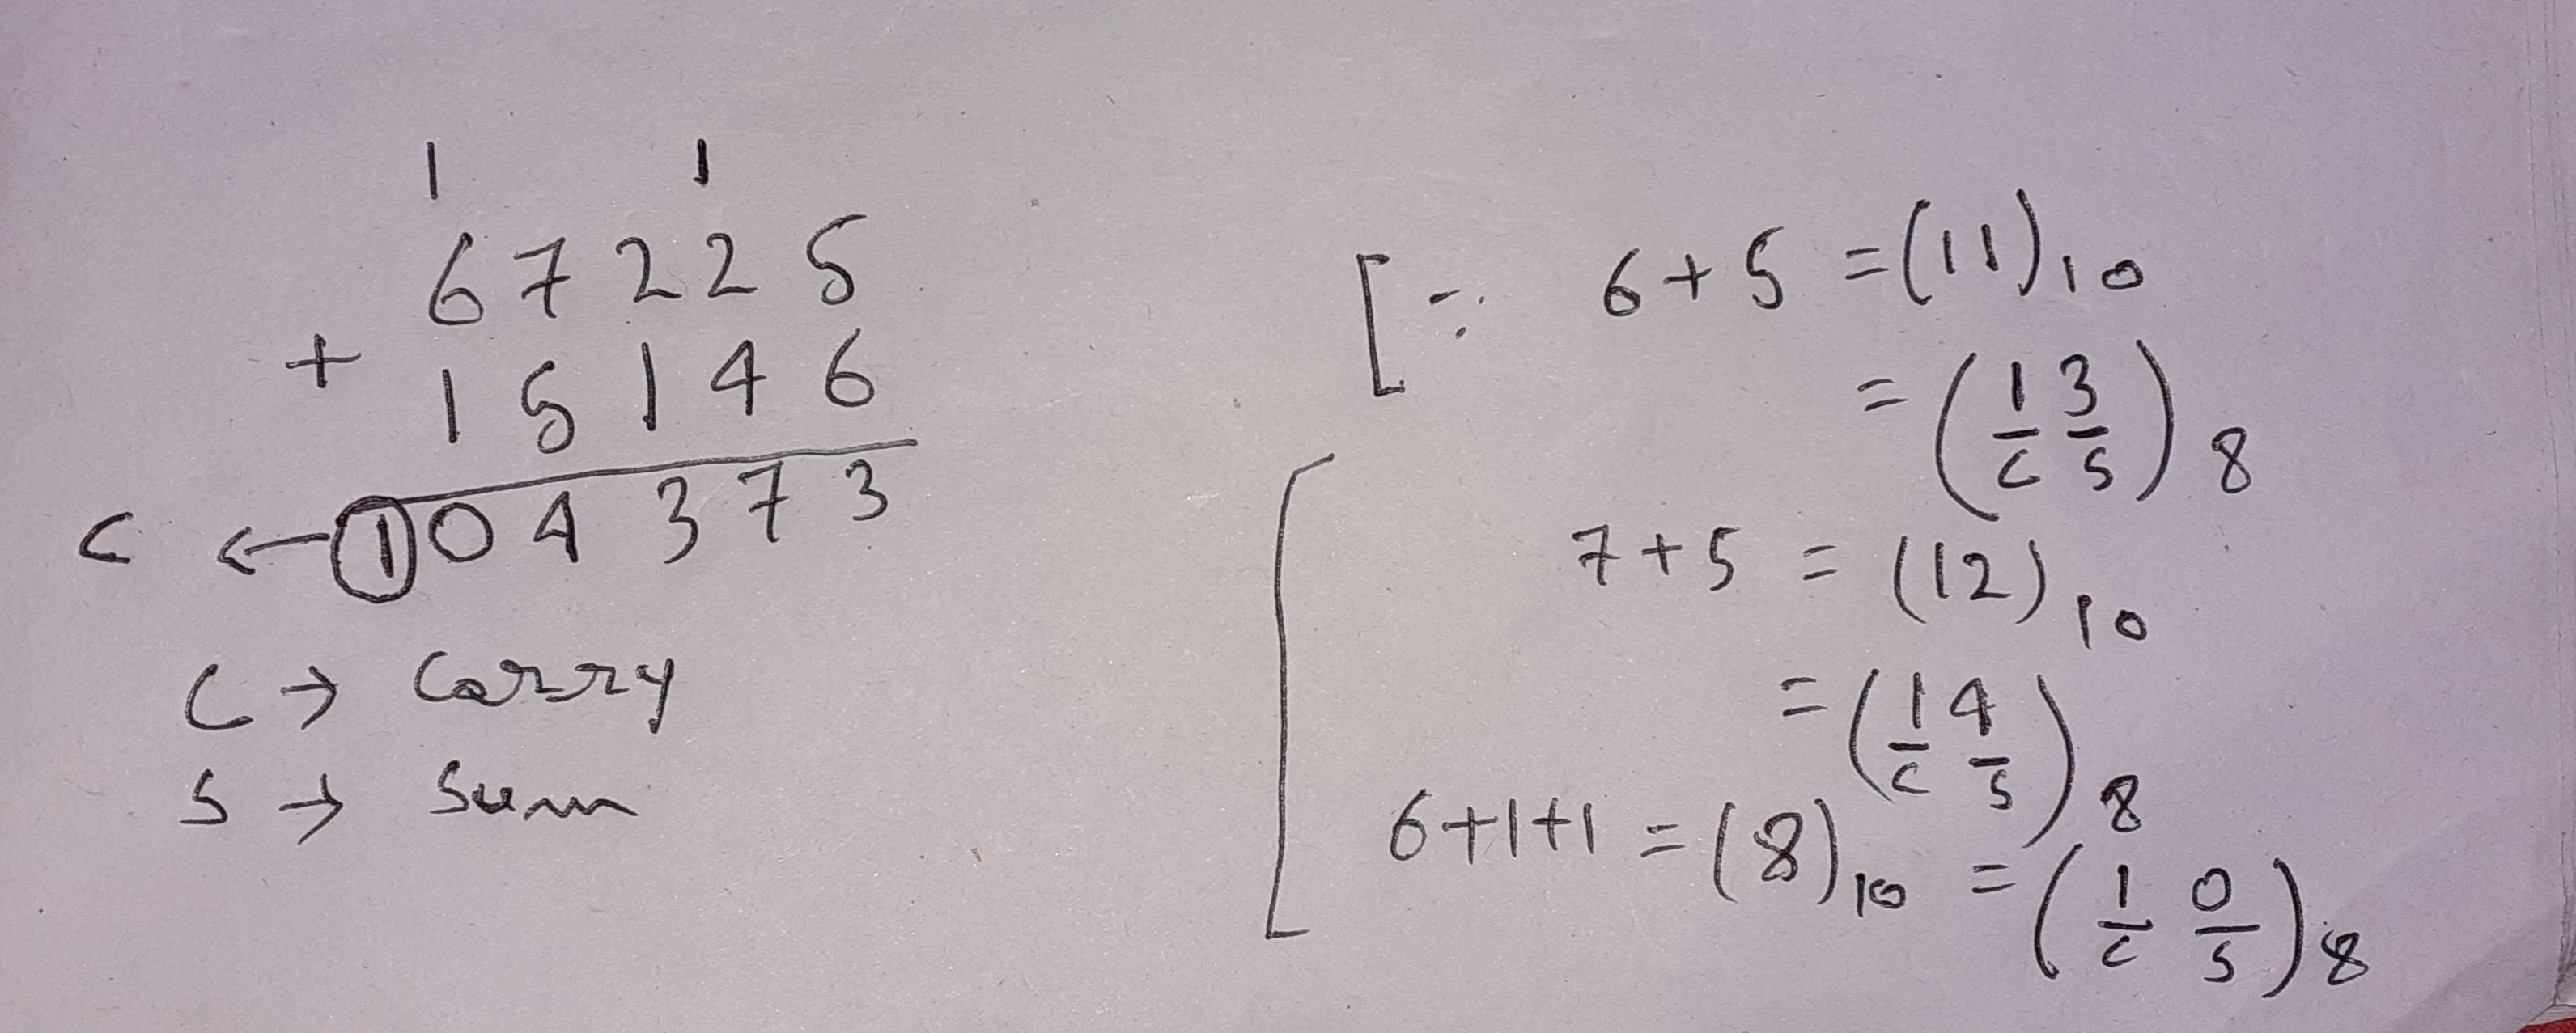 1 1
6 7 2 2 5
+ 1 5 1 4 6
C ← 1 0 4 3 7 3
C → Carry
S → Sum
[∵ 6 + 5 = (11)10
= (1 3)8
C S
7 + 5 = (12)10
= (1 4)8
C S
6+1+1 = (8)10 = (1 0)8
C S